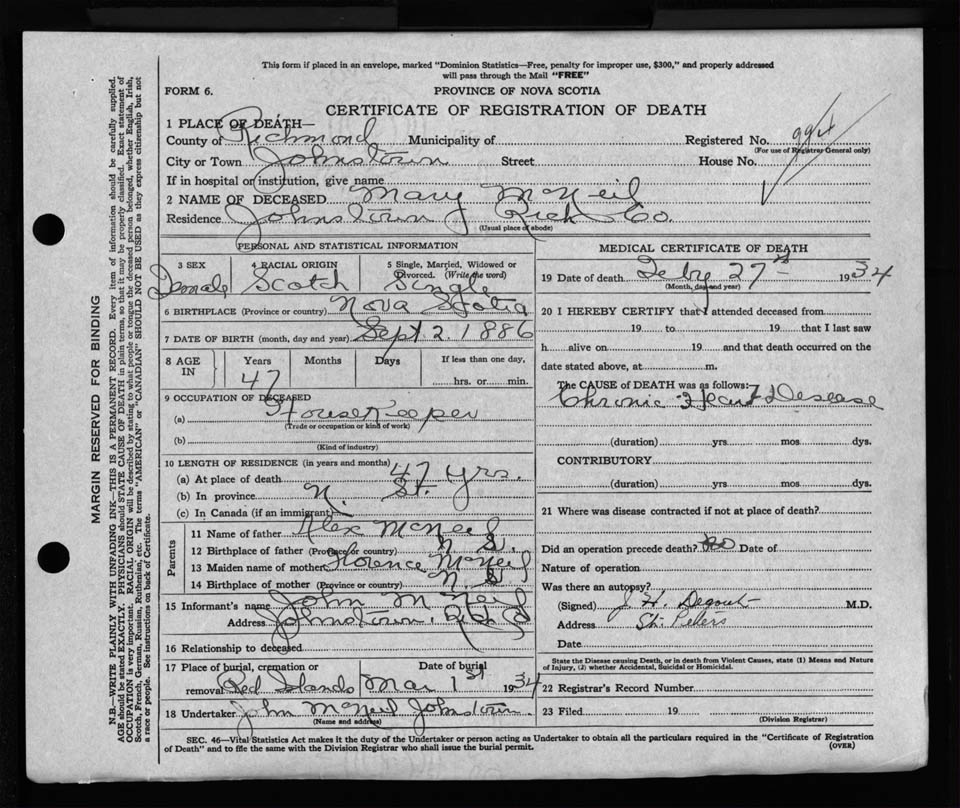 This form if placed in an envelope, marked "Dominion Statistics—Free, penalty for improper use, $300," and properly addressed
will pass through the Mail "FREE"
FORM 6.
PROVINCE OF NOVA SCOTIA
CERTIFICATE OF REGISTRATION OF DEATH
1 PLACE OF DEATH—
County of Richmond Municipality of Registered No. 994
(For use of Registrar General only)
City or Town Johnstown Street House No.
If in hospital or institution, give name
2 NAME OF DECEASED Mary McNeil
Residence Johnstown Rich Co.
(Usual place of abode)
PERSONAL AND STATISTICAL INFORMATION
3 SEX 4 RACIAL ORIGIN 5 Single, Married, Widowed or
Divorced. (Write the word)
Female Scotch Single
6 BIRTHPLACE (Province or country) Nova Scotia
7 DATE OF BIRTH (month, day and year) Sept 2. 1886
8 AGE IN Years Months Days If less than one day,
47 hrs. or min.
9 OCCUPATION OF DECEASED
(a) HouseKeeper
(Trade or occupation or kind of work)
(b)
(Kind of industry)
10 LENGTH OF RESIDENCE (in years and months)
(a) At place of death 47 yrs.
(b) In province N.
(c) In Canada (if an immigrant)
Parents
11 Name of father Alex McNeil
12 Birthplace of father (Province or country) N S.
13 Maiden name of mother Florence McNeil
14 Birthplace of mother (Province or country) N. S
15 Informant's name John McNeil
Address Johnstown, Rich
16 Relationship to deceased
17 Place of burial, cremation or Date of burial
removal Red Islands Mar 1st 1934
18 Undertaker John McNeil Johnstown.
(Name and address)
MEDICAL CERTIFICATE OF DEATH
19 Date of death Feby 27th 1934
(Month, day and year)
20 I HEREBY CERTIFY that I attended deceased from
19 to 19 that I last saw
h alive on 19 and that death occurred on the
date stated above, at m.
The CAUSE of DEATH was as follows:
Chronic Heart Desease
(duration) yrs. mos. dys.
CONTRIBUTORY
(duration) yrs. mos. dys.
21 Where was disease contracted if not at place of death?
Did an operation precede death? no Date of
Nature of operation
Was there an autopsy?
(Signed) M.D.
Address St. Peters
Date
State the Disease causing Death, or in death from Violent Causes, state (1) Means and Nature
of Injury, (2) whether Accidental, Suicidal or Homicidal.
22 Registrar's Record Number
23 Filed 19
(Division Registrar)
SEC. 46—Vital Statistics Act makes it the duty of the Undertaker or person acting as Undertaker to obtain all the particulars required in the "Certificate of Registration
of Death" and to file the same with the Division Registrar who shall issue the burial permit.
(OVER)
MARGIN RESERVED FOR BINDING
N.B.—WRITE PLAINLY WITH UNFADING INK—THIS IS A PERMANENT RECORD. Every item of information should be carefully supplied.
AGE should be stated EXACTLY. PHYSICIANS should STATE CAUSE OF DEATH in plain terms, so that it may be properly classified. Exact statement of
OCCUPATION is very important. RACIAL ORIGIN will be described by stating to what people or tongue the deceased person belonged, whether English, Irish,
Scotch, French, German, Russian, Ruthenian, etc. The terms "AMERICAN" or "CANADIAN" SHOULD NOT BE USED as they express citizenship but not
a race or people. See instructions on back of Certificate.